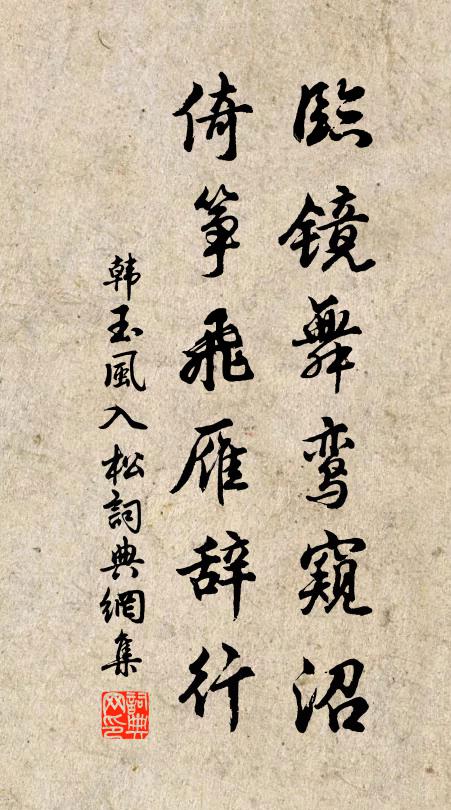 臨镜舞鸾窥沼
倚筝飛雁辞行
韩玉風入松詞典網集
詞典網印